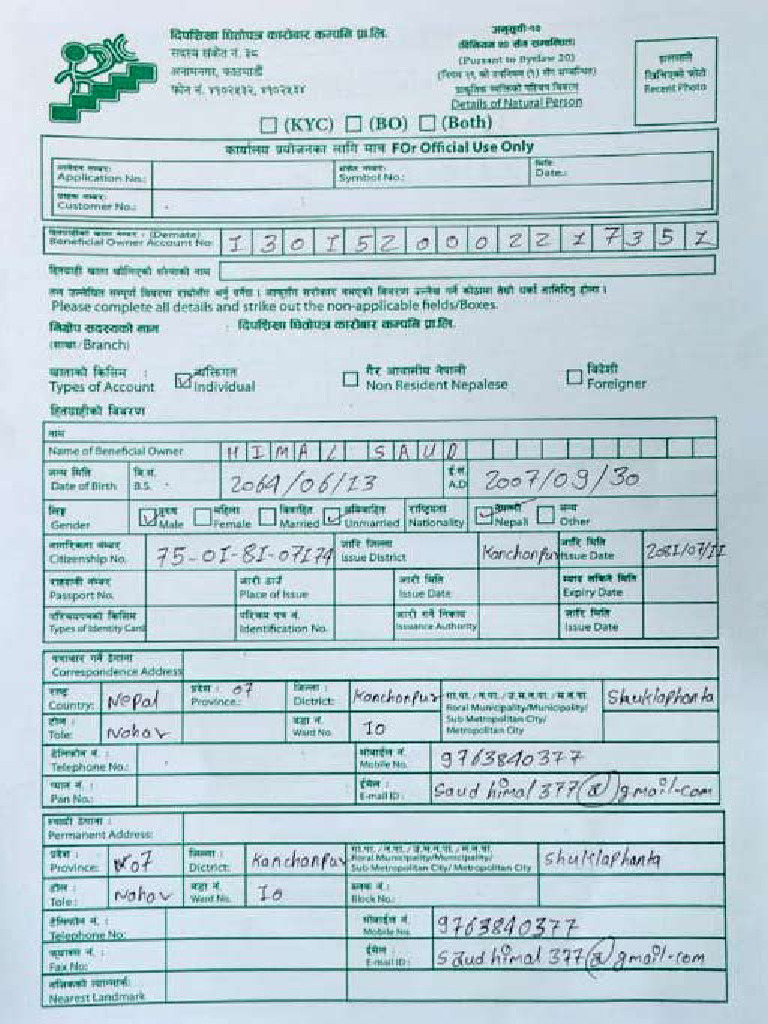 दिपशिखा धितोपत्र कारोबार कम्पनि प्रा.लि.
सदस्य संकेत नं. ३८
अनामनगर, काठमाडौं
फोन नं. ४१०२५३२, ४१०२५३४
अनुसूची-१०
(विनियम २० सँग सम्बन्धित)
(Pursuant to Byelaw 20)
प्राकृतिक व्यक्तिको परिचय विवरण
Details of Natural Person
Recent Photo
(KYC) (BO) (Both)
कार्यालय प्रयोजनका लागि मात्र FOr Official Use Only
Application No.: Symbol No.: Date.:
Customer No.:
(Demate)
Beneficial Owner Account No: 1 3 0 1 5 2 0 0 0 0 2 2 1 7 3 5 1
हितग्राही खाता खोलिएको संस्थाको नाम
Please complete all details and strike out the non-applicable fields/Boxes.
निक्षेप सदस्यको नाम : दिपशिखा धितोपत्र कारोबार कम्पनि प्रा.लि.
(शाखा/Branch)
खाताको किसिम : व्यक्तिगत गैर आवासीय नेपाली विदेशी
Types of Account Individual Non Resident Nepalese Foreigner
हितग्राहीको विवरण
नाम
Name of Beneficial Owner HIMAL SAUD
जन्म मिति वि.सं. ई.सं.
Date of Birth B.S. 2064/06/13 A.D 2007/09/30
लिङ्ग पुरुष महिला विवाहित अविवाहित राष्ट्रियता नेपाली अन्य
Gender Male Female Married Unmarried Nationality Nepali Other
नागरिकता नम्बर जारि जिल्ला जारि मिति
Citizenship No. 75-01-81-07174 Issue District Kanchanpur Issue Date 2081/07/11
राहदानी नम्बर जारी ठाउँ जारी मिति म्याद सकिने मिति
Passport No. Place of Issue Issue Date Expiry Date
परिचयपत्रको किसिम परिचय पत्र नं. जारी गर्ने निकाय जारि मिति
Types of Identity Card Identification No. Issuance Authority Issue Date
पत्राचार गर्ने ठेगाना
Correspondence Address
राष्ट्र प्रदेश : जिल्ला : गा.पा. / न.पा. / उ.म.न.पा. / म.न.पा.
Country: Nepal Province.: 07 Dictrict: Kanchanpur Roral Municipality/Municipality/ Sub Metropolitan City/ Metropolitan City Shuklaphanta
टोल : वडा नं.
Tole: Nohar Ward No. 10
टेलिफोन नं. : मोबाईल नं.
Telephone No.: Mobile No. 9763840377
प्यान नं. : ईमेल :
Pan No.: E-mail ID: Saudhimal377@gmail.com
स्थायी ठेगाना :
Permanent Address:
प्रदेश : जिल्ला : गा.पा. / न.पा. / उ.म.न.पा. / म.न.पा.
Province: 07 Dictrict: Kanchanpur Roral Municipality/Municipality/ Sub Metropolitan City/ Metropolitan City Shuklaphanta
टोल : वडा नं. ब्लक नं. :
Tole: Nohar Ward No. 10 Block No.:
टेलिफोन नं. : मोबाईल नं.
Telephone No: Mobile No. 9763840377
फ्याक्स नं. : ईमेल :
Fax No: E-mail ID: Saudhimal377@gmail.com
Nearest Landmark